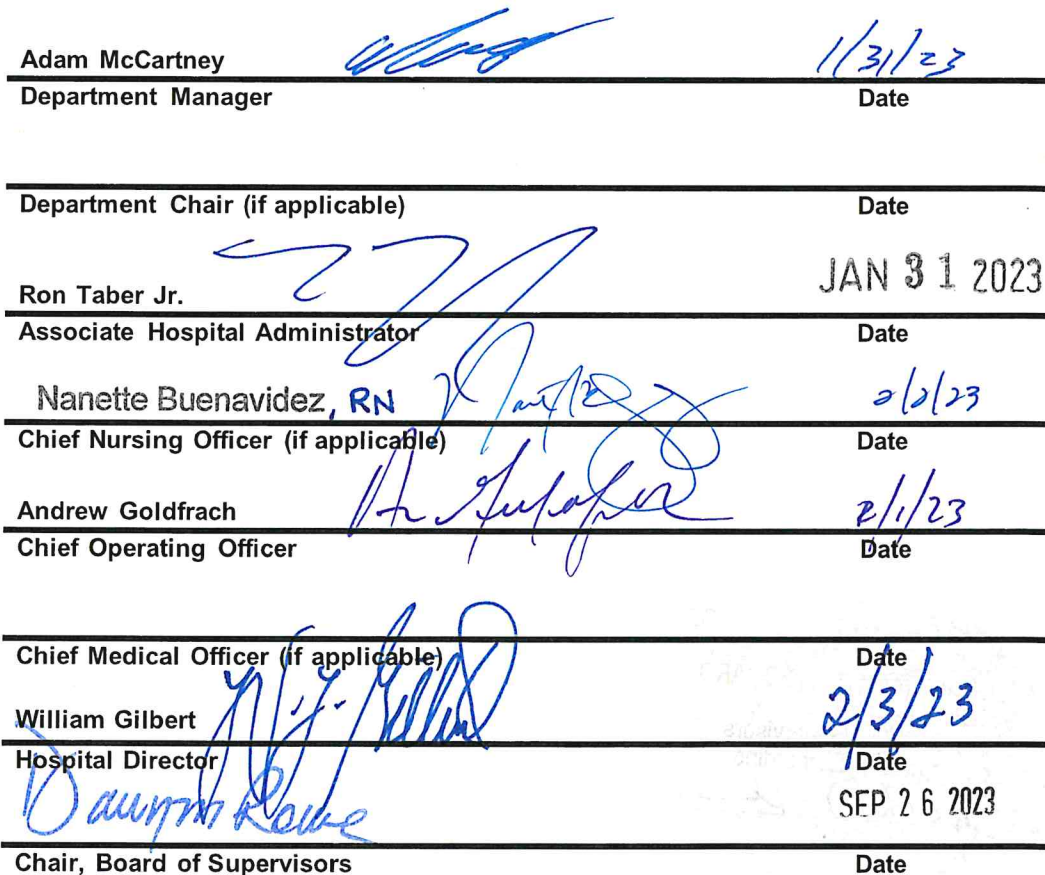 Adam McCartney 1/31/23
Department Manager Date
Department Chair (if applicable) Date
Ron Taber Jr. JAN 31 2023
Associate Hospital Administrator Date
Nanette Buenavidez, RN 2/2/23
Chief Nursing Officer (if applicable) Date
Andrew Goldfrach 2/1/23
Chief Operating Officer Date
Chief Medical Officer (if applicable) Date
William Gilbert W.L. Gilbert 2/3/23
Hospital Director Date
Dawn Rowe SEP 26 2023
Chair, Board of Supervisors Date